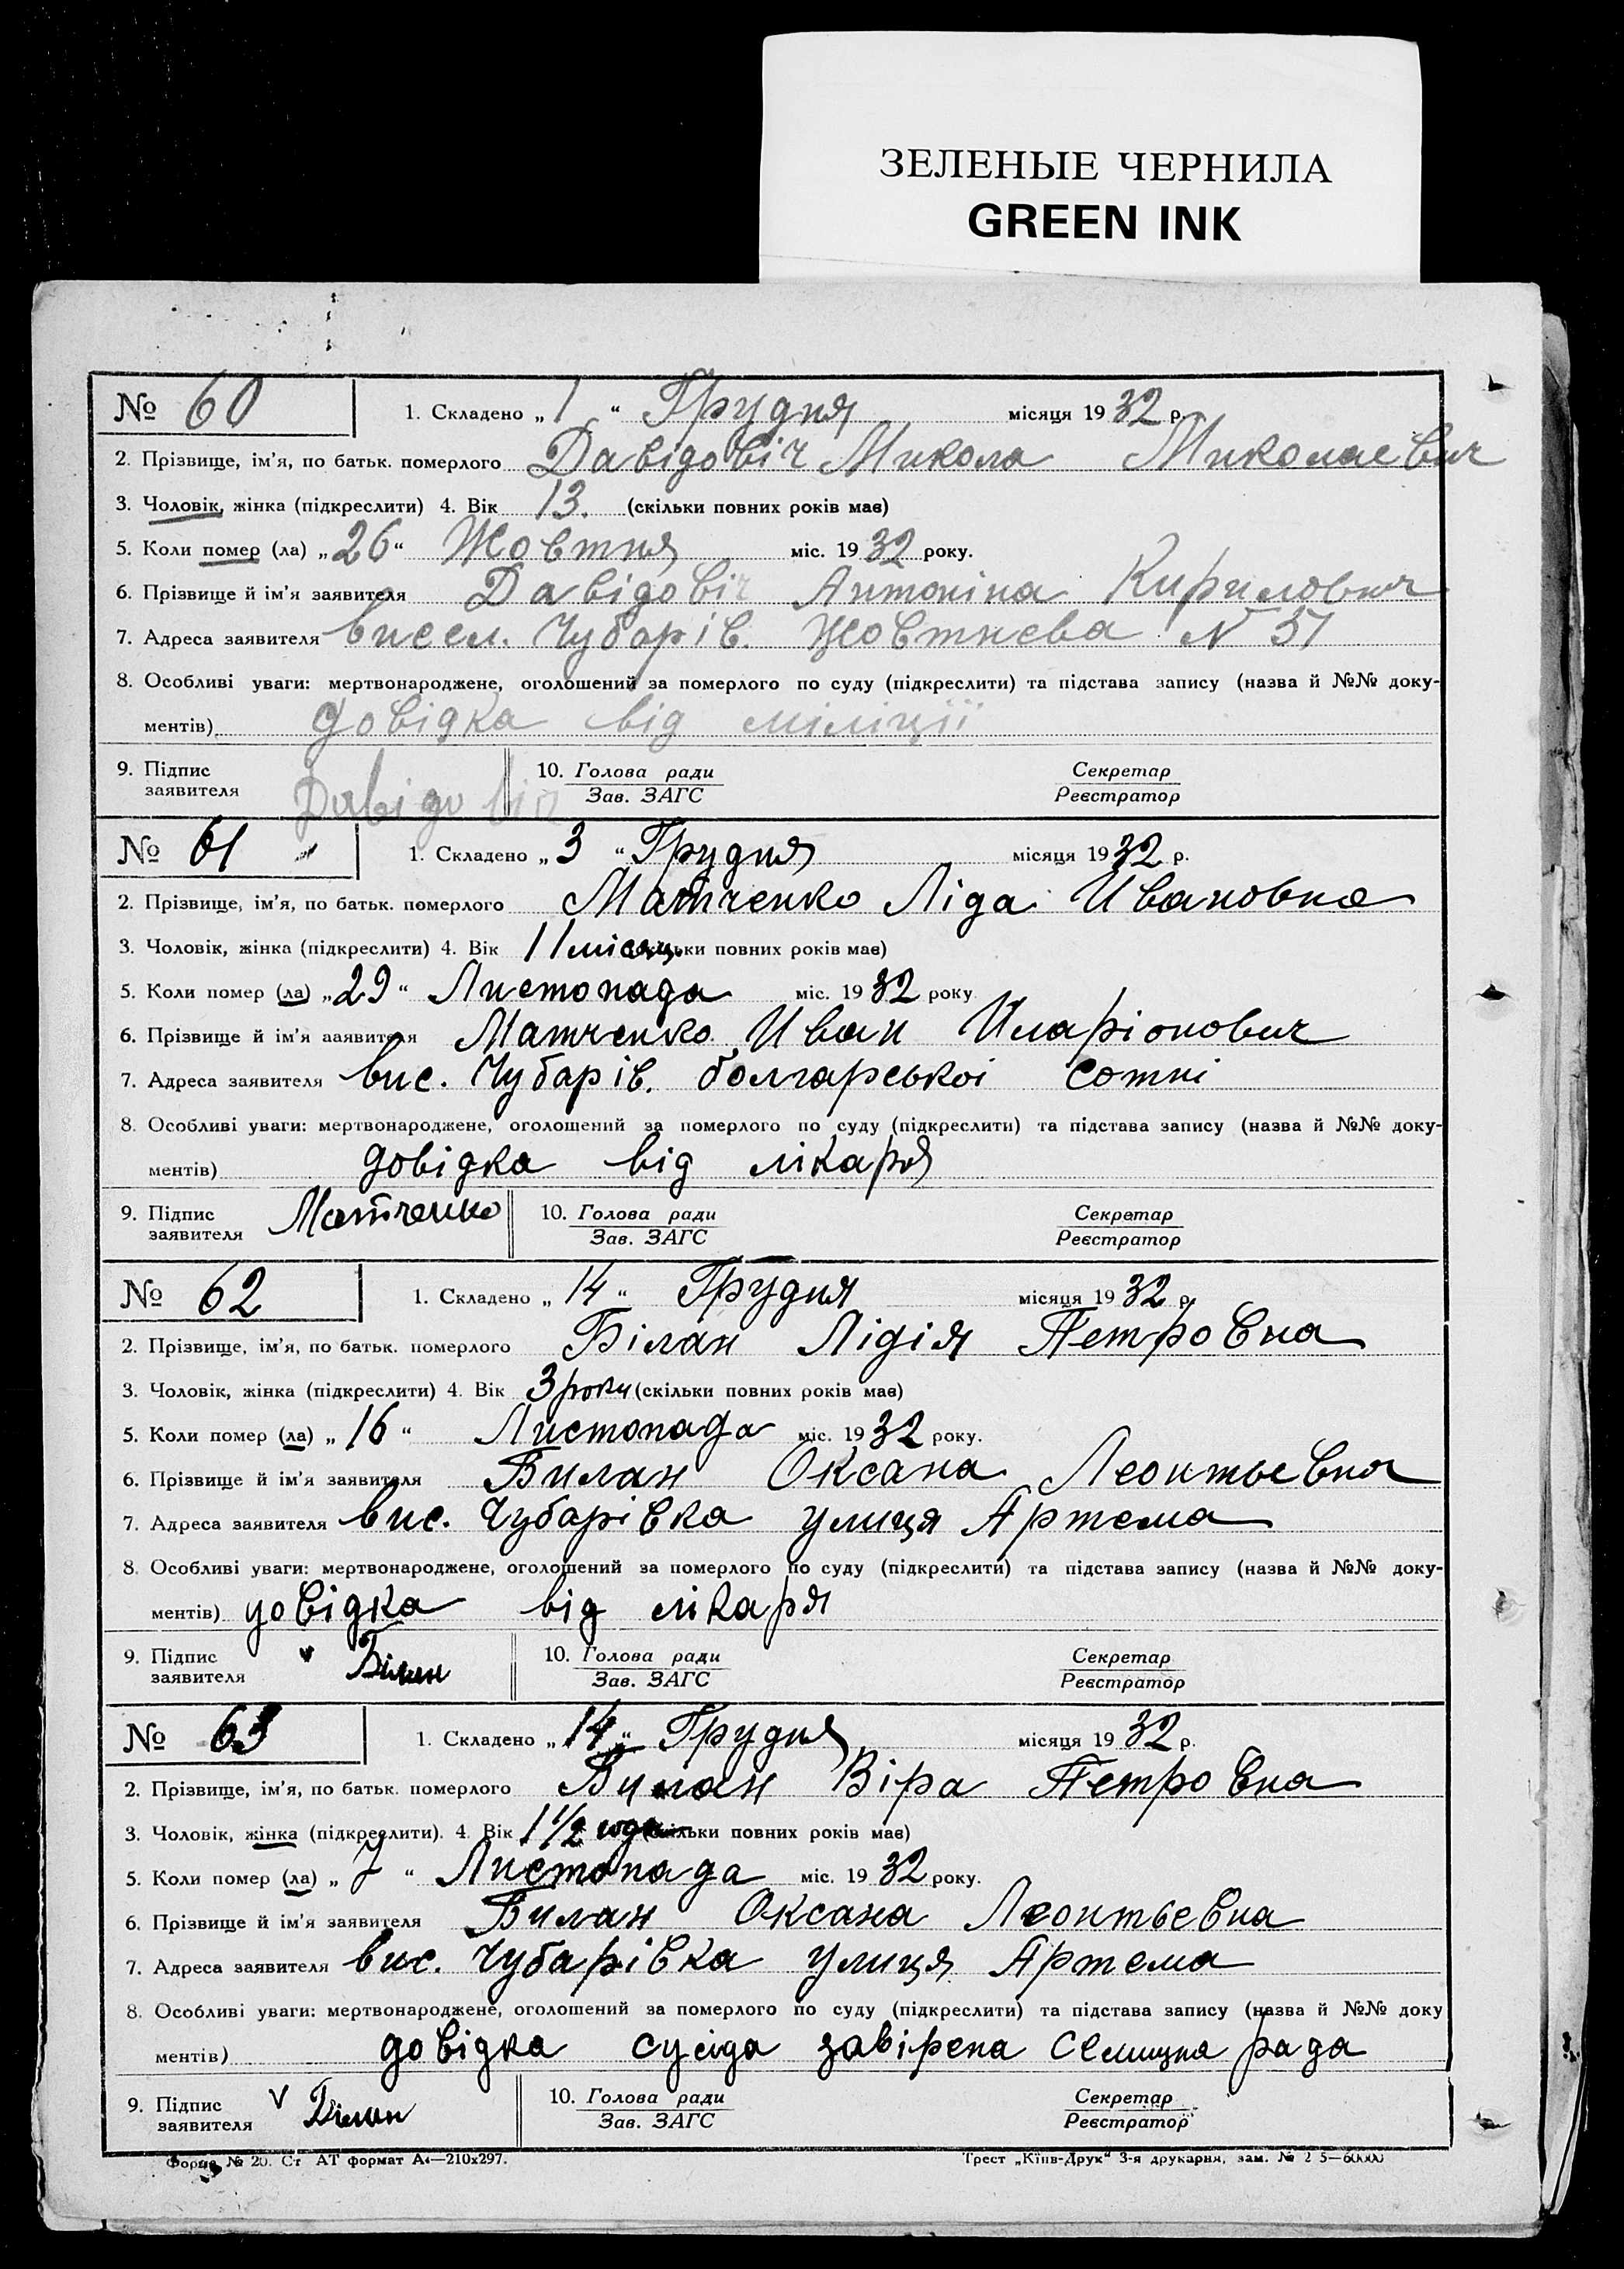 ЗЕЛЕНЫЕ ЧЕРНИЛА
GREEN INK
№ 60 1. Складено „ 1 “ Грудня місяця 1932 р.
2. Прізвище, ім’я, по батьк. померлого Давідовіч Микола Миколаевич
3. Чоловік, жінка (підкреслити) 4. Вік 13. (скільки повних років має)
5. Коли помер (ла) „26“ Жовтня міс. 1932 року.
6. Прізвище й ім’я заявителя Давідовіч Антоніна Кирилович
7. Адреса заявителя висел. Чубарів. Жовтнева N 37
8. Особливі уваги: мертвонароджене, оголошений за померлого по суду (підкреслити) та підстава запису (назва й №№ доку-
ментів) довідка від міліції
9. Підпис Давідовіч 10. Голова ради Секретар
заявителя Зав. ЗАГС Реєстратор
№ 61 1. Складено „ 3 “ Грудня місяця 1932 р.
2. Прізвище, ім’я, по батьк. померлого Матченко Ліда Ивановна
3. Чоловік, жінка (підкреслити) 4. Вік 11 місяц. (скільки повних років має)
5. Коли помер (ла) „29“ Листопада міс. 1932 року
6. Прізвище й ім’я заявителя Матченко Иван Иларіонович
7. Адреса заявителя вис. Чубарів. болгарської сотні
8. Особливі уваги: мертвонароджене, оголошений за померлого по суду (підкреслити) та підстава запису (назва й №№ доку-
ментів) довідка від лікаря
9. Підпис Матченко 10. Голова ради Секретар
заявителя Зав. ЗАГС Реєстратор
№ 62 1. Складено „ 14 “ Грудня місяця 1932 р.
2. Прізвище, ім’я, по батьк. померлого Білан Лідія Петровна
3. Чоловік, жінка (підкреслити) 4. Вік 3 роки (скільки повних років має)
5. Коли помер (ла) „ 16 “ Листопада міс. 1932 року.
6. Прізвище й ім’я заявителя Билан Оксана Леонтьевна
7. Адреса заявителя вис. Чубарівка улиця Артема
8. Особливі уваги: мертвонароджене, оголошений за померлого по суду (підкреслити) та підстава запису (назва й №№ доку-
ментів) довідка від лікаря
9. Підпис v Білан 10. Голова ради Секретар
заявителя Зав. ЗАГС Реєстратор
№ 63 1. Складено „ 14 “ Грудня місяця 1932 р.
2. Прізвище, ім’я, по батьк. померлого Билан Віра Петровна
3. Чоловік, жінка (підкреслити). 4. Вік 1 1/2 года (скільки повних років має)
5. Коли помер (ла) „ 7 “ Листопада міс. 1932 року.
6. Прізвище й ім’я заявителя Билан Оксана Леонтьевна
7. Адреса заявителя вис. Чубарівка улиця Артема
8. Особливі уваги: мертвонароджене, оголошений за померлого по суду (підкреслити) та підстава запису (назва й №№ доку
ментів) довідка сусіда завірена Селищна рада
9. Підпис v Білан 10. Голова ради Секретар
заявителя Зав. ЗАГС Реєстратор
Форма № 20. Ст АТ формат А4—210x297. Трест „Київ-Друк“ 3-я друкарня, зам. №